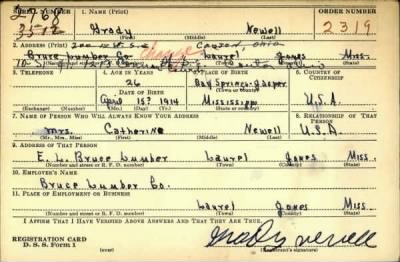 SERIAL NUMBER 1. NAME (Print) ORDER NUMBER
Grady Newell 2319
(First) (Middle) (Last)
2. ADDRESS (Print) Canton, Ohio
Bruce Lumber Co. Laurel Jones Miss.
(Number and street or R. F. D. number) (Town) (County) (State)
3. TELEPHONE 4. AGE IN YEARS 5. PLACE OF BIRTH 6. COUNTRY OF CITIZENSHIP
26 Bay Springs-Jasper
DATE OF BIRTH (Town or county)
April 15th 1914 Mississippi U.S.A.
(Exchange) (Number) (Mo.) (Day) (Yr.) (State or country)
7. NAME OF PERSON WHO WILL ALWAYS KNOW YOUR ADDRESS 8. RELATIONSHIP OF THAT PERSON
Mrs. Catherine Newell U.S.A.
(Mr., Mrs., Miss) (First) (Middle) (Last)
9. ADDRESS OF THAT PERSON
E. L. Bruce Lumber Laurel Jones Miss.
(Number and street or R. F. D. number) (Town) (County) (State)
10. EMPLOYER'S NAME
Bruce Lumber Co.
11. PLACE OF EMPLOYMENT OR BUSINESS
Laurel Jones Miss.
(Number and street or R. F. D. number) (Town) (County) (State)
I AFFIRM THAT I HAVE VERIFIED ABOVE ANSWERS AND THAT THEY ARE TRUE.
REGISTRATION CARD
D. S. S. Form 1 (over) Grady Newell
(Registrant's signature)